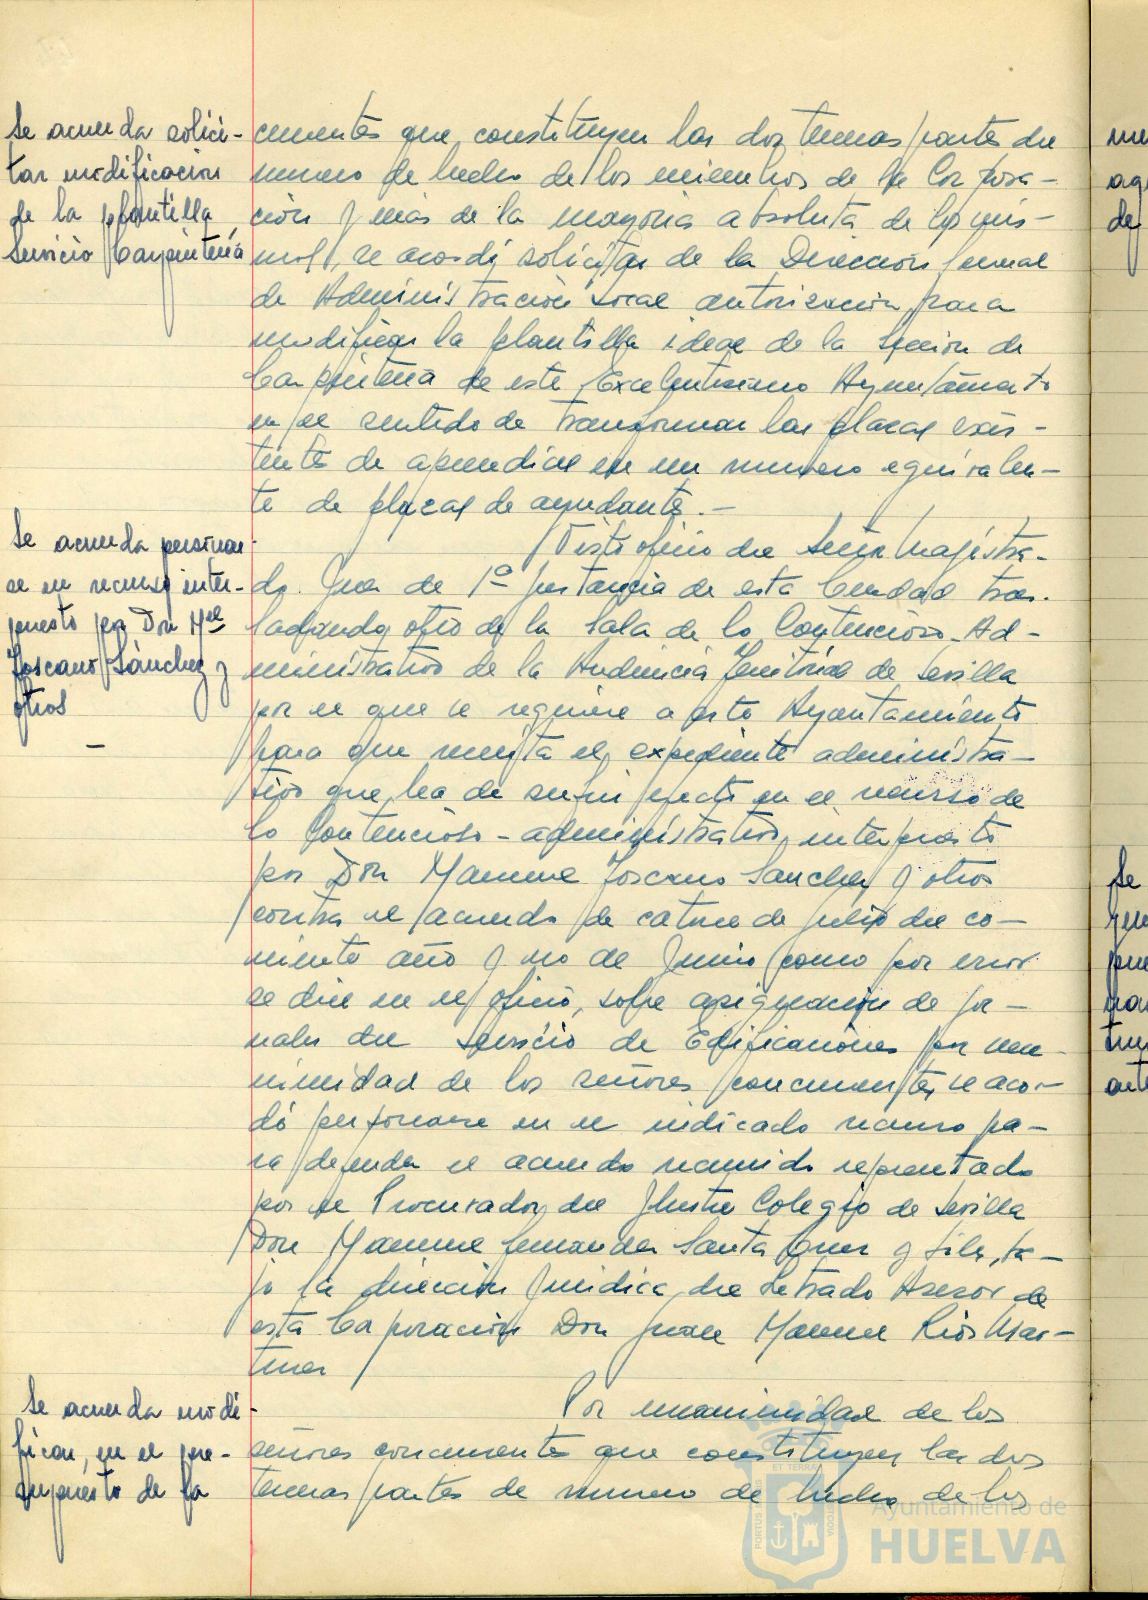 Se acuerda solici-
tar modificacion
de la plantilla
Servicio Carpintería
currentes que constituyen las dos terceras partes del
número de hecho de los miembros de la Corpora-
ción y más de la mayoria absoluta de los mis-
mos, se acordó solicitar de la Dirección General
de Administración Local autorización para
modificar la plantilla ideal de la Sección de
Carpintería de este Excelentísimo Ayuntamiento
en el sentido de transformar las plazas exis-
tentes de aprendices en un número equivalen-
te de plazas de ayudante.-
Se acuerda personar-
se en recurso inter-
puesto por Don Mel
Toscano Sánchez y
otros
Visto oficio del Señor Magistra-
do Juez de 1ª Instancia de esta Ciudad tras-
ladando otro de la Sala de lo Contencioso-Ad-
ministrativo de la Audiencia Territorial de Sevilla
por el que se requiere a este Ayuntamiento
para que remita el expediente administra-
tivo que ha de surtir efecto en el recurso de
lo Contencioso-administrativo interpuesto
por Don Manuel Toscano Sanchez y otros
contra el acuerdo de catorce de julio del co-
rriente año y no de Junio como por error
se dice en el oficio, sobre asignación de jor-
nales del Servicio de Edificaciones por una-
nimidad de los señores concurrentes se acor-
dó personarse en el indicado recurso pa-
ra defender el acuerdo recurrido representado
por el Procurador del Ilustre Colegio de Sevilla
Don Manuel Fernandez Santa Cruz y Silva, ba-
jo la dirección Jurídica del Letrado Asesor de
esta Corporación Don Juan Manuel Ríos Mar-
tinez
Se acuerda modi-
ficar, en el pre-
supuesto de la
Por unanimidad de los
señores concurrentes que constituyen las dos
terceras partes de número de hecho de los
Ayuntamiento de
HUELVA
PORTUS
ET TERRAE
CUSTODIA